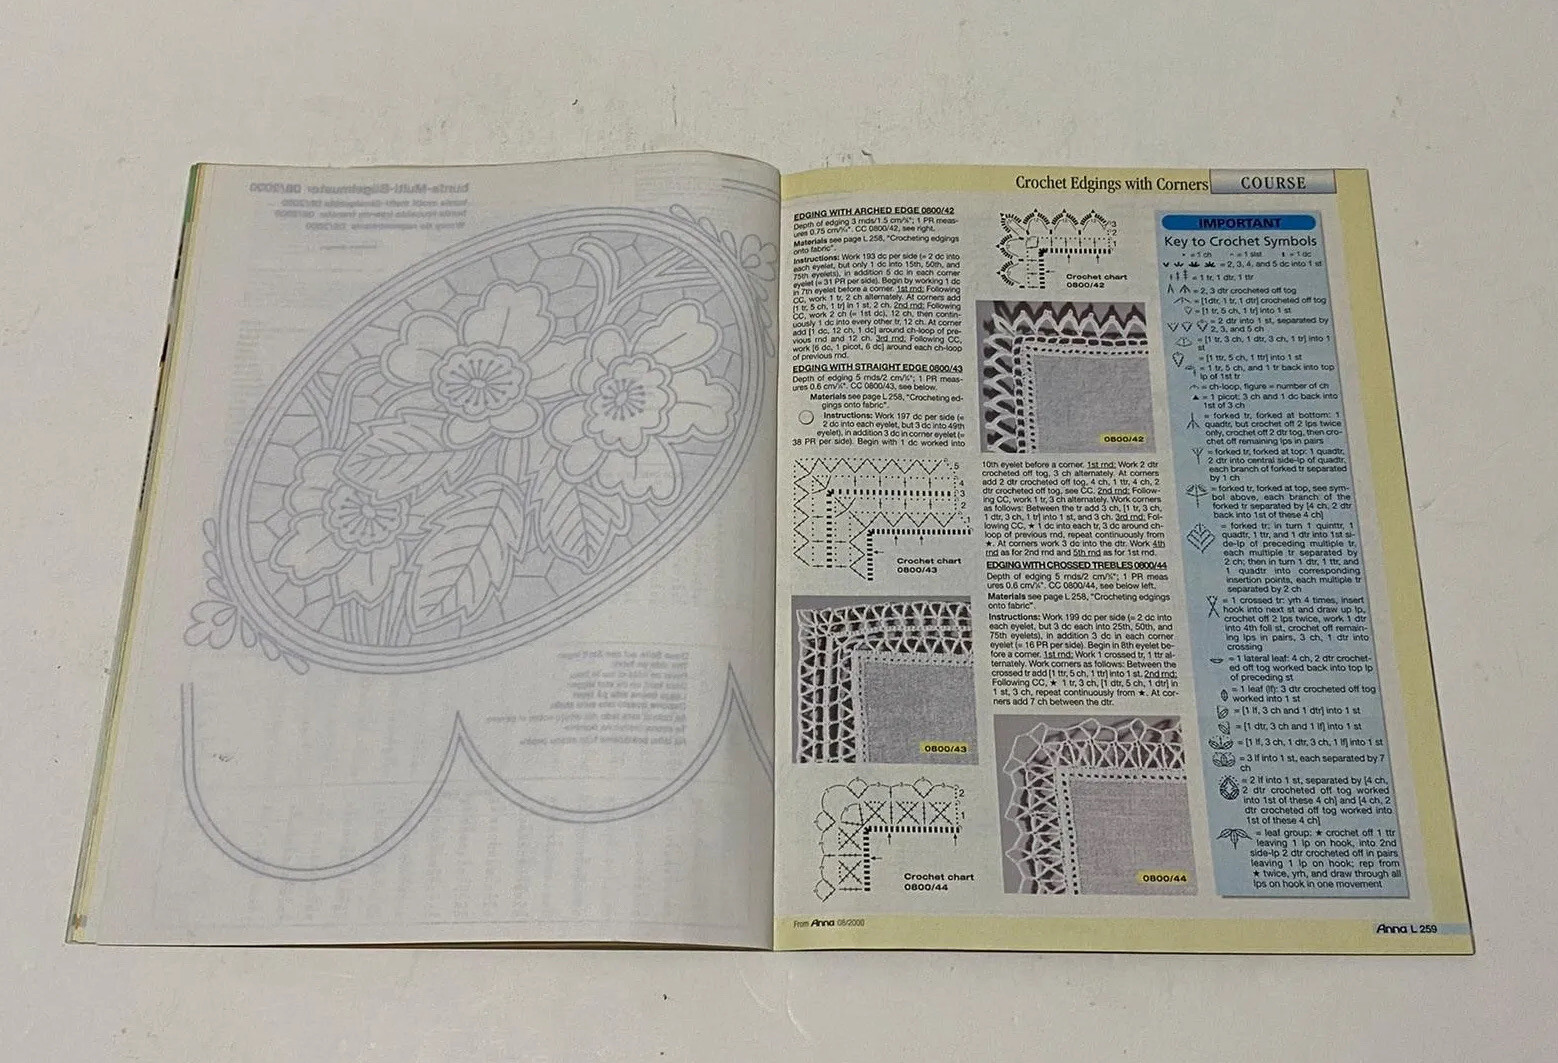 Crochet Edgings with Corners
COURSE
EDGING WITH ARCHED EDGE 0800/42
Depth of edging 3 rnds/1.5 cm/⅝"; 1 PR meas-
ures 0.75 cm/¼". CC 0800/42, see right.
Materials see page L 258, "Crocheting edgings
onto fabric".
Instructions: Work 193 dc per side (= 2 dc into
each eyelet, but only 1 dc into 15th, 50th, and
75th eyelets), in addition 5 dc in each corner
eyelet (= 31 PR per side). Begin by working 1 dc
in 7th eyelet before a corner. 1st rnd: Following
CC, work 1 tr, 2 ch alternately. At corners add
[1 tr, 5 ch, 1 tr] in 1 st, 2 ch. 2nd rnd: Following
CC, work 2 ch (= 1st dc), 12 ch, then contin-
uously 1 dc into every other tr, 12 ch. At corner
add [1 dc, 12 ch, 1 dc] around ch-loop of pre-
vious rnd and 12 ch. 3rd rnd: Following CC,
work [6 dc, 1 picot, 6 dc] around each ch-loop
of previous rnd.
EDGING WITH STRAIGHT EDGE 0800/43
Depth of edging 5 rnds/2 cm/¾"; 1 PR meas-
ures 0.6 cm/¼". CC 0800/43, see below.
Materials see page L 258, "Crocheting ed-
gings onto fabric".
Instructions: Work 197 dc per side (=
2 dc into each eyelet, but 3 dc into 49th
eyelet), in addition 3 dc in corner eyelet (=
38 PR per side). Begin with 1 dc worked into
5
4
3
2
1
Crochet chart
0800/43
0800/43
2
1
Crochet chart
0800/44
3
2
1
Crochet chart
0800/42
0800/42
10th eyelet before a corner. 1st rnd: Work 2 dtr
crocheted off tog, 3 ch alternately. At corners
add 2 dtr crocheted off tog, 4 ch, 1 ttr, 4 ch, 2
dtr crocheted off tog, see CC. 2nd rnd: Follow-
ing CC, work 1 tr, 3 ch alternately. Work corners
as follows: Between the tr add 3 ch, [1 tr, 3 ch,
1 dtr, 3 ch, 1 tr] into 1 st, and 3 ch. 3rd rnd: Fol-
lowing CC, ★ 1 dc into each tr, 3 dc around ch-
loop of previous rnd, repeat continuously from
★. At corners work 3 dc into the dtr. Work 4th
rnd as for 2nd rnd and 5th rnd as for 1st rnd.
EDGING WITH CROSSED TREBLES 0800/44
Depth of edging 5 rnds/2 cm/¾"; 1 PR meas
ures 0.6 cm/¼". CC 0800/44, see below left.
Materials see page L 258, "Crocheting edgings
onto fabric".
Instructions: Work 199 dc per side (= 2 dc into
each eyelet, but 3 dc each into 25th, 50th, and
75th eyelets), in addition 3 dc in each corner
eyelet (= 16 PR per side). Begin in 8th eyelet be-
fore a corner. 1st rnd: Work 1 crossed tr, 1 ttr al-
ternately. Work corners as follows: Between the
crossed tr add [1 ttr, 5 ch, 1 ttr] into 1 st. 2nd rnd:
Following CC, ★ 1 tr, 3 ch, [1 dtr, 5 ch, 1 dtr] in
1 st, 3 ch, repeat continuously from ★. At cor-
ners add 7 ch between the dtr.
0800/44
IMPORTANT
Key to Crochet Symbols
= 1 ch = 1 slst = 1 dc
= 2, 3, 4, and 5 dc into 1 st
= 1 tr, 1 dtr, 1 ttr
= 2, 3 dtr crocheted off tog
= [1dtr, 1 tr, 1 dtr] crocheted off tog
= [1 tr, 5 ch, 1 tr] into 1 st
= 2 dtr into 1 st, separated by
2, 3, and 5 ch
= [1 tr, 3 ch, 1 dtr, 3 ch, 1 tr] into 1
st
= [1 ttr, 5 ch, 1 ttr] into 1 st
= 1 tr, 5 ch, and 1 tr back into top
lp of 1st tr
= ch-loop, figure = number of ch
▲ = 1 picot: 3 ch and 1 dc back into
1st of 3 ch
= forked tr, forked at bottom: 1
quadtr, but crochet off 2 lps twice
only, crochet off 2 dtr tog, then cro-
chet off remaining lps in pairs
= forked tr, forked at top: 1 quadtr,
2 dtr into central side-lp of quadtr,
each branch of forked tr separated
by 1 ch
= forked tr, forked at top, see sym-
bol above, each branch of the
forked tr separated by [4 ch, 2 dtr
back into 1st of these 4 ch]
= forked tr: in turn 1 quinttr, 1
quadtr, 1 ttr, and 1 dtr into 1st si-
de-lp of preceding multiple tr,
each multiple tr separated by
2 ch; then in turn 1 dtr, 1 ttr, and
1 quadtr into corresponding
insertion points, each multiple tr
separated by 2 ch
= 1 crossed tr: yrh 4 times, insert
hook into next st and draw up lp,
crochet off 2 lps twice, work 1 dtr
into 4th foll st, crochet off remain-
ing lps in pairs, 3 ch, 1 dtr into
crossing
= 1 lateral leaf: 4 ch, 2 dtr crochet-
ed off tog worked back into top lp
of preceding st
= 1 leaf (lf): 3 dtr crocheted off tog
worked into 1 st
= [1 lf, 3 ch and 1 dtr] into 1 st
= [1 dtr, 3 ch and 1 lf] into 1 st
= [1 lf, 3 ch, 1 dtr, 3 ch, 1 lf] into 1 st
= 3 lf into 1 st, each separated by 7
ch
= 2 lf into 1 st, separated by [4 ch,
2 dtr crocheted off tog worked
into 1st of these 4 ch] and [4 ch, 2
dtr crocheted off tog worked into
1st of these 4 ch]
= leaf group: ★ crochet off 1 ttr
leaving 1 lp on hook, into 2nd
side-lp 2 dtr crocheted off in pairs
leaving 1 lp on hook; rep from
★ twice, yrh, and draw through all
lps on hook in one movement
From Anna 08/2000
Anna L 259